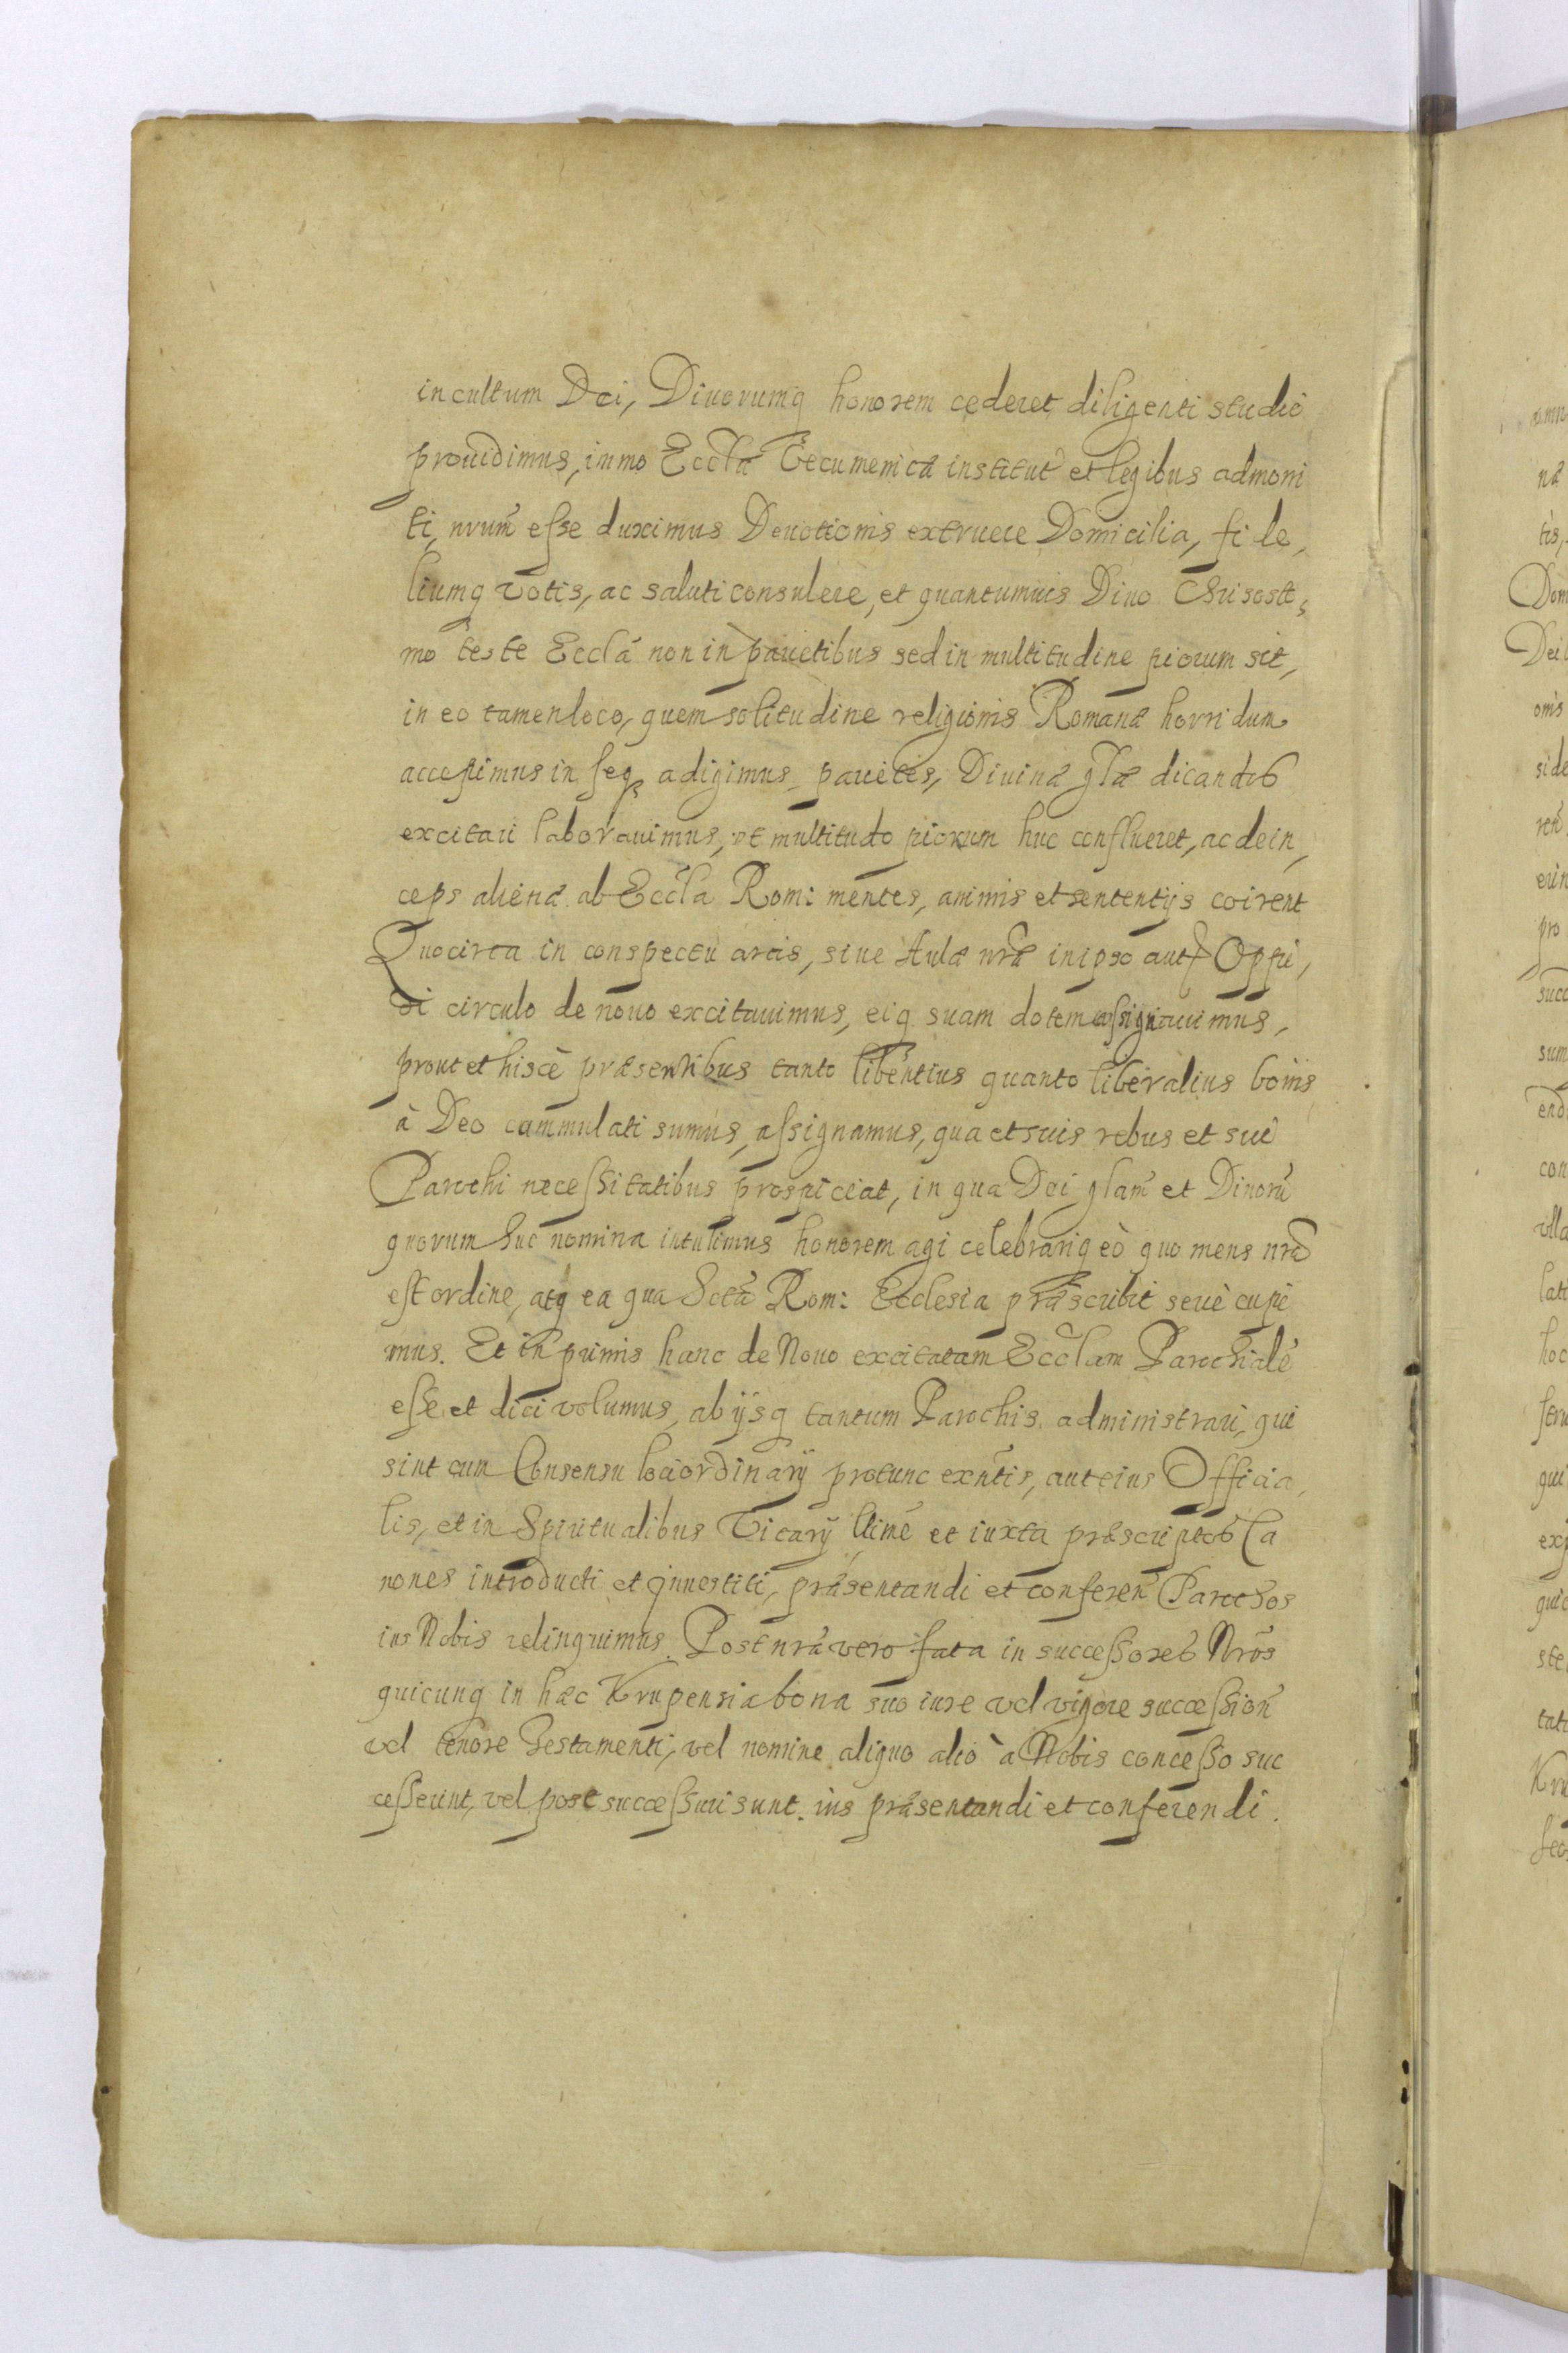 in cultum Dei, Diuorumq honorem cederet diligenti studio
prouidimus, immo Eccla Oecumenicæ institut et legibus admoni
ti, nrum esse duximus Deuotionis extruere Domicilia, fide,
liumq votis, ac saluti consulere, et quantumuis Diuo Chrisosto,
mo teste Eccla non in parietibus sed in multitudine piorum sit,
in eo tamen loco, quem solitudine religionis Romanæ horridum
accepimus in seq adigimus parietes, Diuinæ glæ dicandos
excitari laborauimus, vt multitudo piorum huc conflueret, ac dein,
ceps alienæ ab Eccla Rom: mentes, animis et sententijs coirent
Quocirca in conspectu arcis, siue Aulæ nræ in ipso aut Oppi,
di circulo de nouo excitauimus, eiq suam dotem assignauimus,
prout et hisce præsentibus tanto libentius quanto liberalius bonis
à Deo cummulati sumus, assignamus, qua et suis rebus et sui
Parochi necessitatibus prospiciat, in qua Dei glam et Diuoru
quorum huc nomina intulimus honorem agi celebrariq eò quo mens nra
est ordine, atq ea qua Scta Rom: Ecclesia præscribit serie cupi
mus. Et in primis hanc de Nouo excitatam Ecclam Parochiale
esse et dici volumus, ab ijsq tantum Parochis administrari, qui
sint cum Consensu loci ordinarij protunc exntis, aut eius Officia,
lis, et in Spiritualibus Vicarij ltime et iuxta præscriptos Ca
nones introducti et inuestiti, præsentandi et conferen Parochos
ius Nobis relinquimus. Post nra vero fata in successores Nros
quicunq in hæc Krupensia bona suo iure vel vigore succession
vel tenore Testamenti, vel nomine aliquo alio à Nobis concesso suc
cesserint, vel post successuri sunt. ius præsentandi et conferendi.